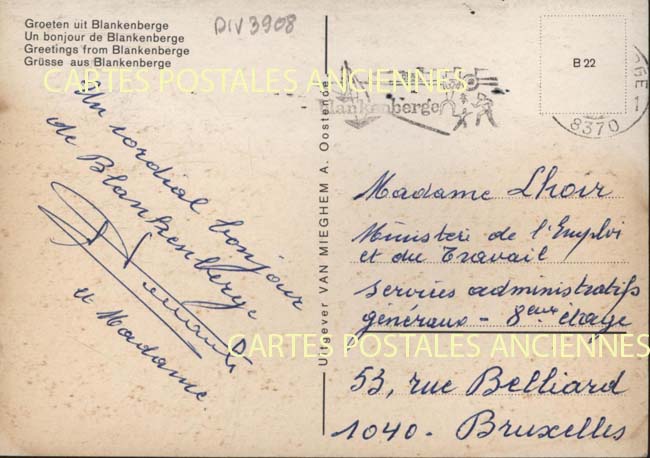 Groeten uit Blankenberge
Un bonjour de Blankenberge
Greetings from Blankenberge
Grüsse aus Blankenberge
DIV3908
CARTES POSTALES ANCIENNES
B 22
Blankenberge
8370
1
Un cordial bonjour
de Blankenberge
et Madame.
Uitgever VAN MIEGHEM A. Oostende
Madame Lhoir
Ministère de l'Emploi
et du Travail
services administratifs
généraux - 8eme étage
CARTES POSTALES ANCIENNES
53, rue Belliard
1040 - Bruxelles